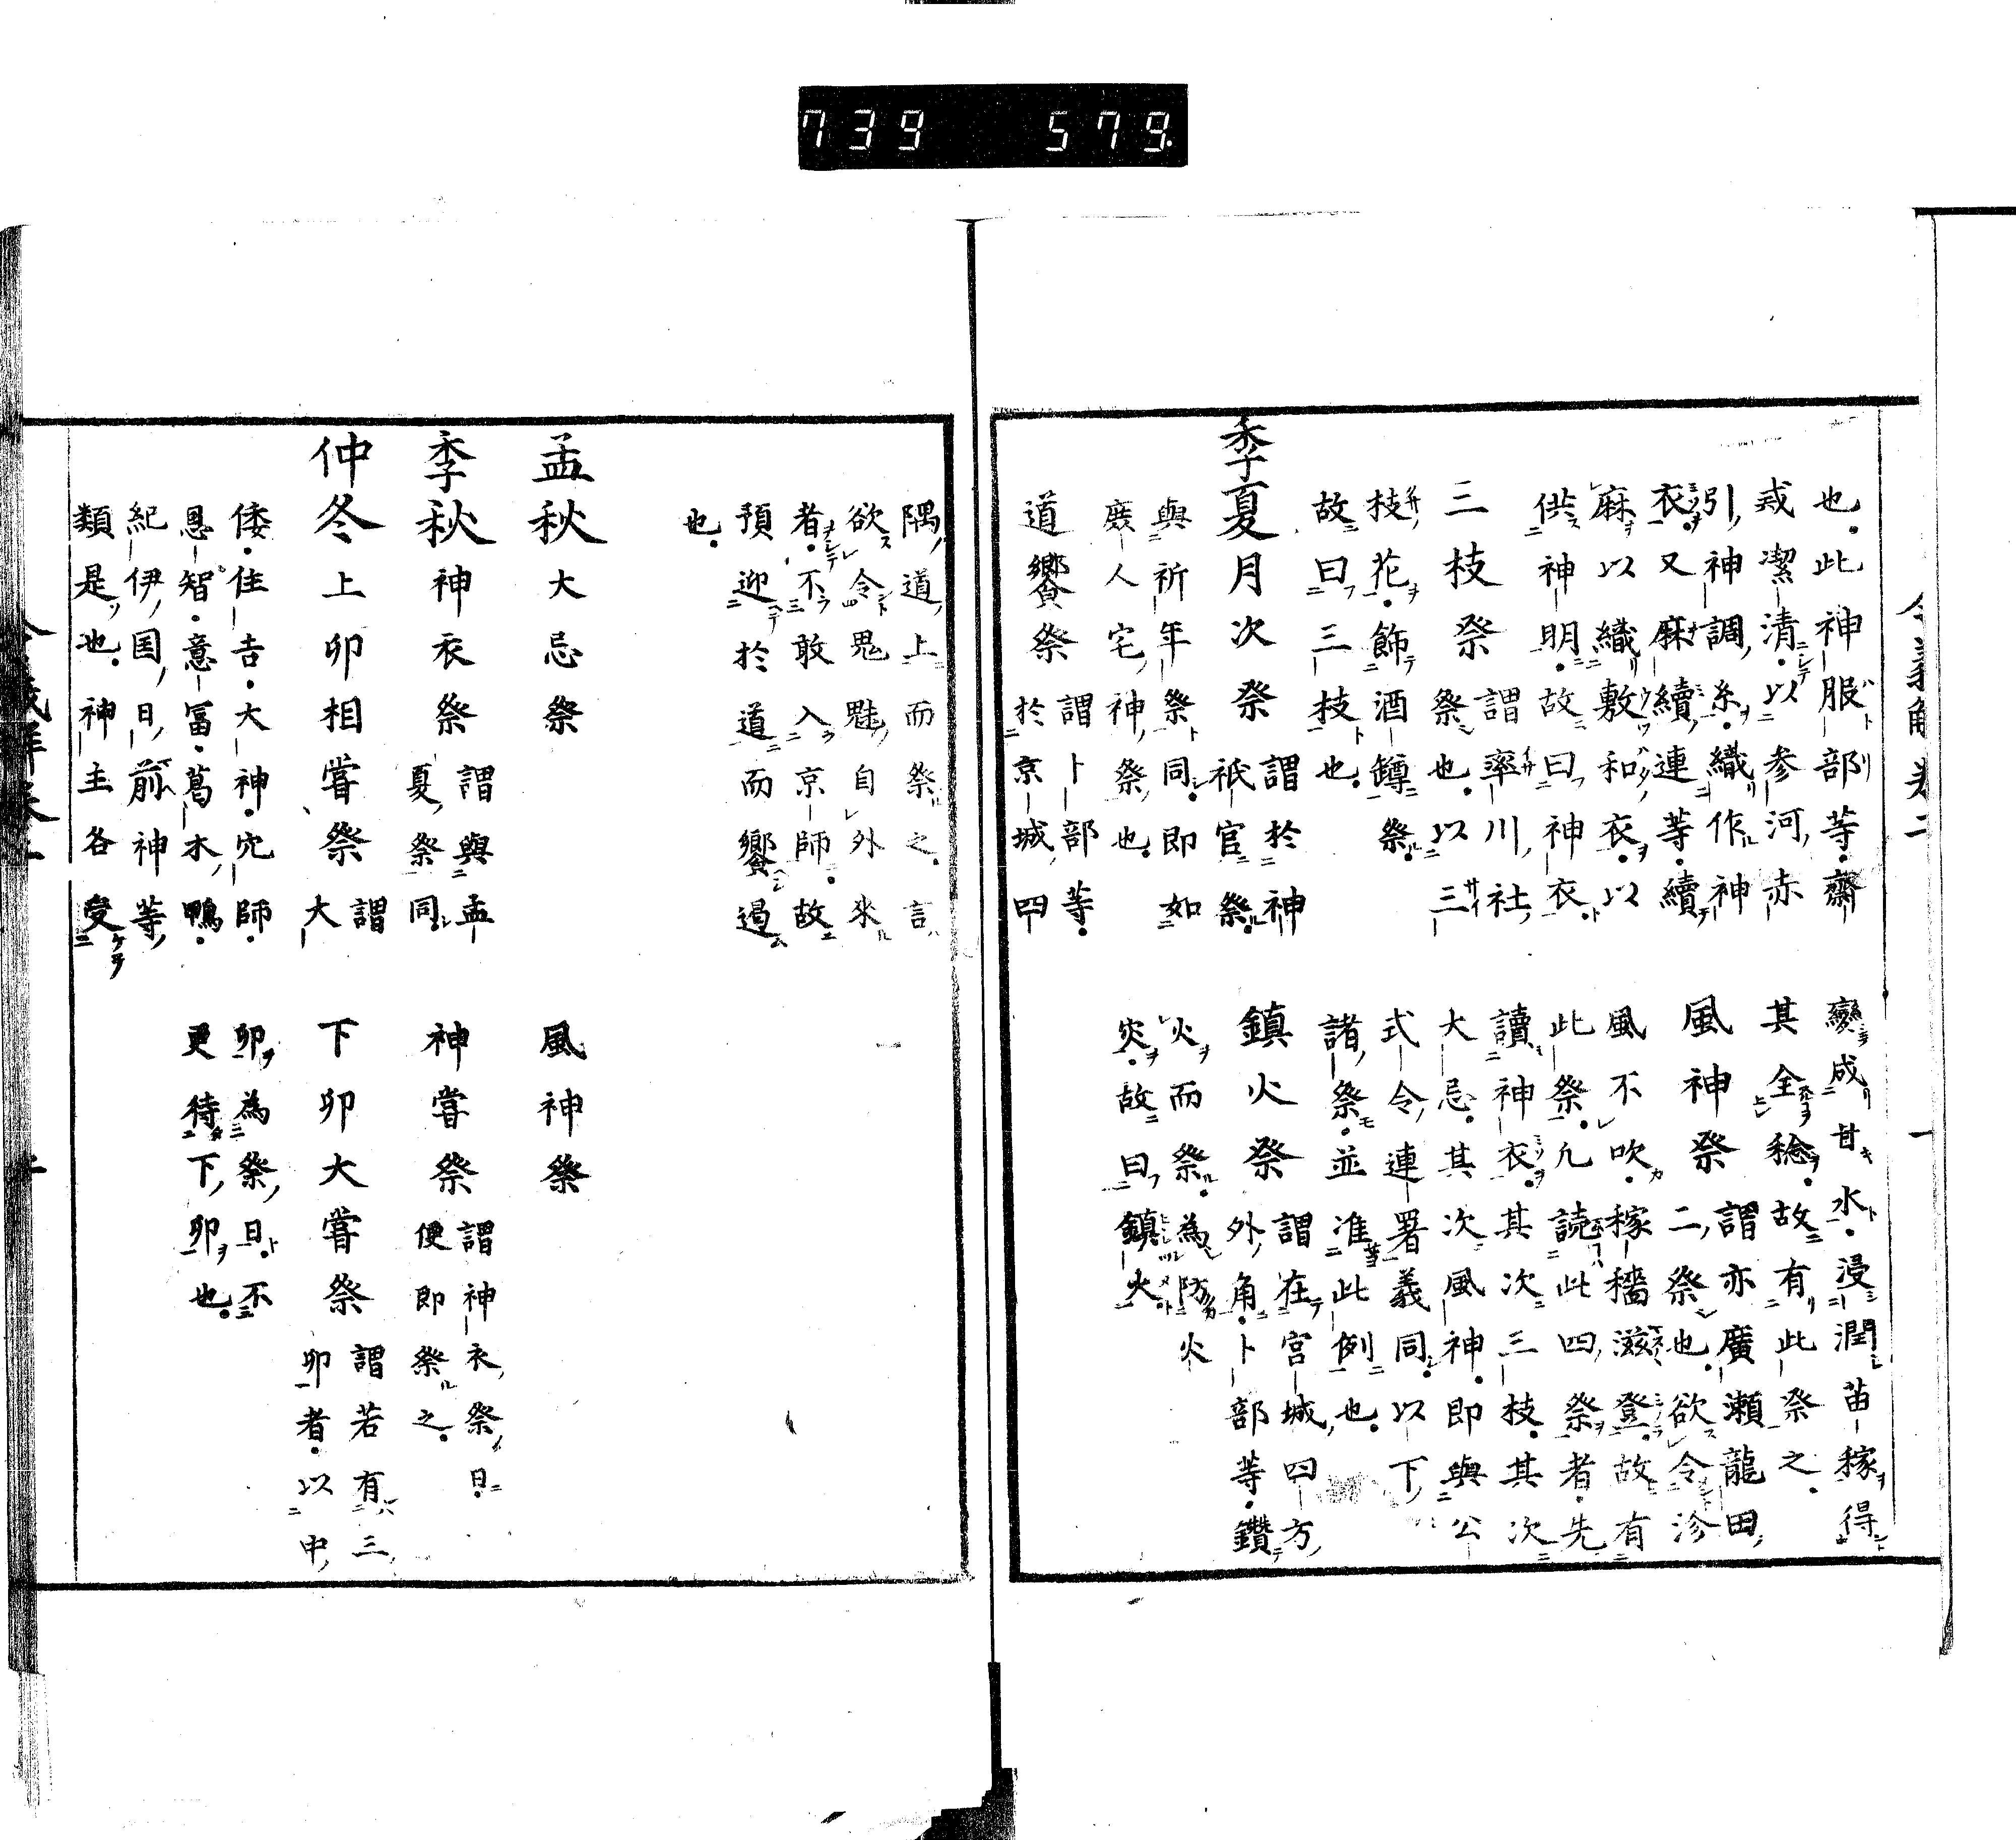 令義解卷二
也。此神服部等。齋
戒潔清。以参河赤
引神調糸。織作神
衣。又麻續連等。續
麻以織敷和衣。以
供神明。故曰神衣。
三枝祭
謂率川社
祭也。以三
枝花。飾酒罇祭。
故曰三枝也。
變成甘水。浸潤苗稼得
其全稔。故有此祭之。
風神祭
謂亦廣瀬龍田
二祭也。欲令沴
風不吹。稼穡滋登。故有
此祭。凢読此四祭者。先
讀神衣。其次三枝。其次
大忌。其次風神。即與公
式令連署義同。以下
諸祭。並准此例也。
季夏月次祭
謂於神
祇官祭。
與祈年祭同。即如
庶人宅神祭也。
鎮火祭
謂在宮城四方
外角。卜部等。鑽
火而祭。為防火
灾。故曰鎮火
道饗祭
謂卜部等。
於京城四
隅道上而祭之。言
欲令鬼魅自外來
者。不敢入京師。故
預迎於道而饗遏
也。
孟秋大忌祭
風神祭
季秋神衣祭
謂與孟
夏祭同
神嘗祭
謂神衣祭日。
便即祭之。
仲冬上卯相嘗祭
謂
大
倭。住吉。大神。穴師。
恩智。意富。葛木鴨。
紀伊国日前神等
類是也。神主各受
下卯大嘗祭
謂若有三
卯者。以中
卯為祭日。不
更待下卯也。